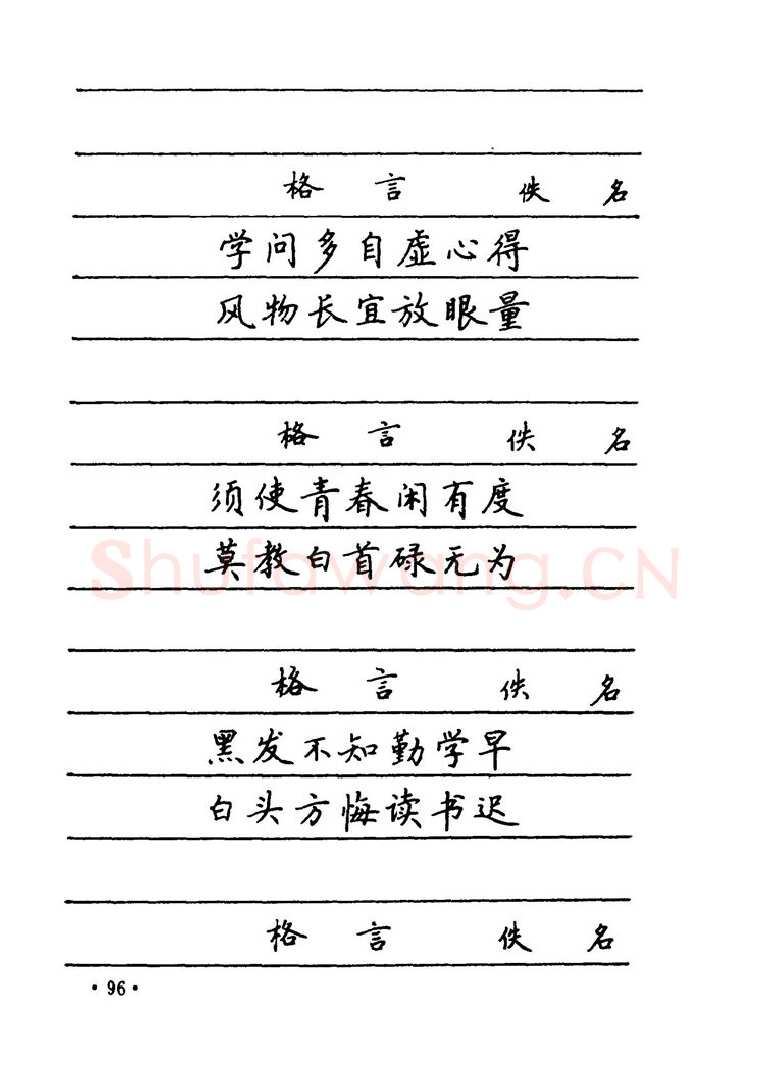 格言 佚名
学问多自虚心得
风物长宜放眼量
格言 佚名
须使青春闲有度
莫教白首碌无为
Shufawang.CN
格言 佚名
黑发不知勤学早
白头方悔读书迟
格言 佚名
·96·